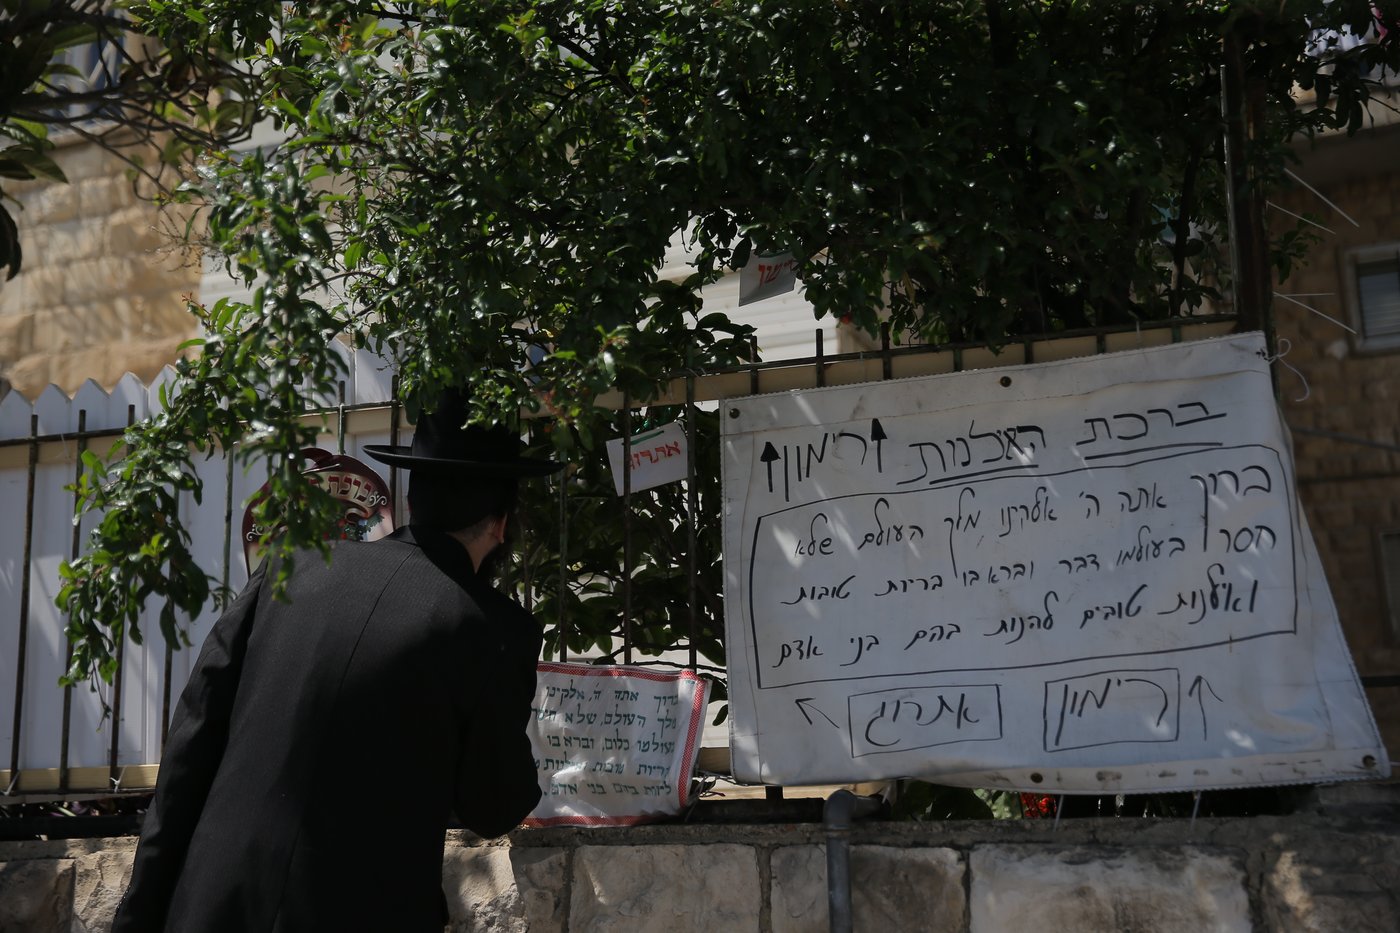 רימון
אתרוג
ברכת האלנות רימון
ברוך אתה ה' אלקינו מלך העולם שלא
חסר בעולמו דבר וברא בו בריות טובות
ואילנות טובים להנות בהם בני אדם
אתרוג רימון
ברוך אתה ה', אלקינו
מלך העולם, שלא חיסר
בעולמו כלום, וברא בו
בריות טובות ואילנות
בני אדם.